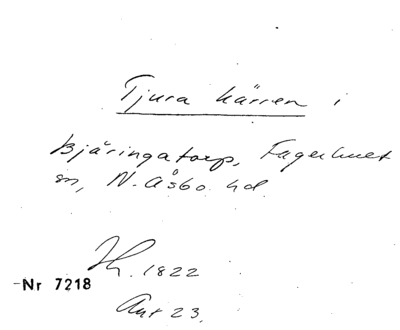 Tjura kärren i
Bjäringatorp, Fagerhult
sn, N. Åsbo hd.
1822
Nr 7218
23.